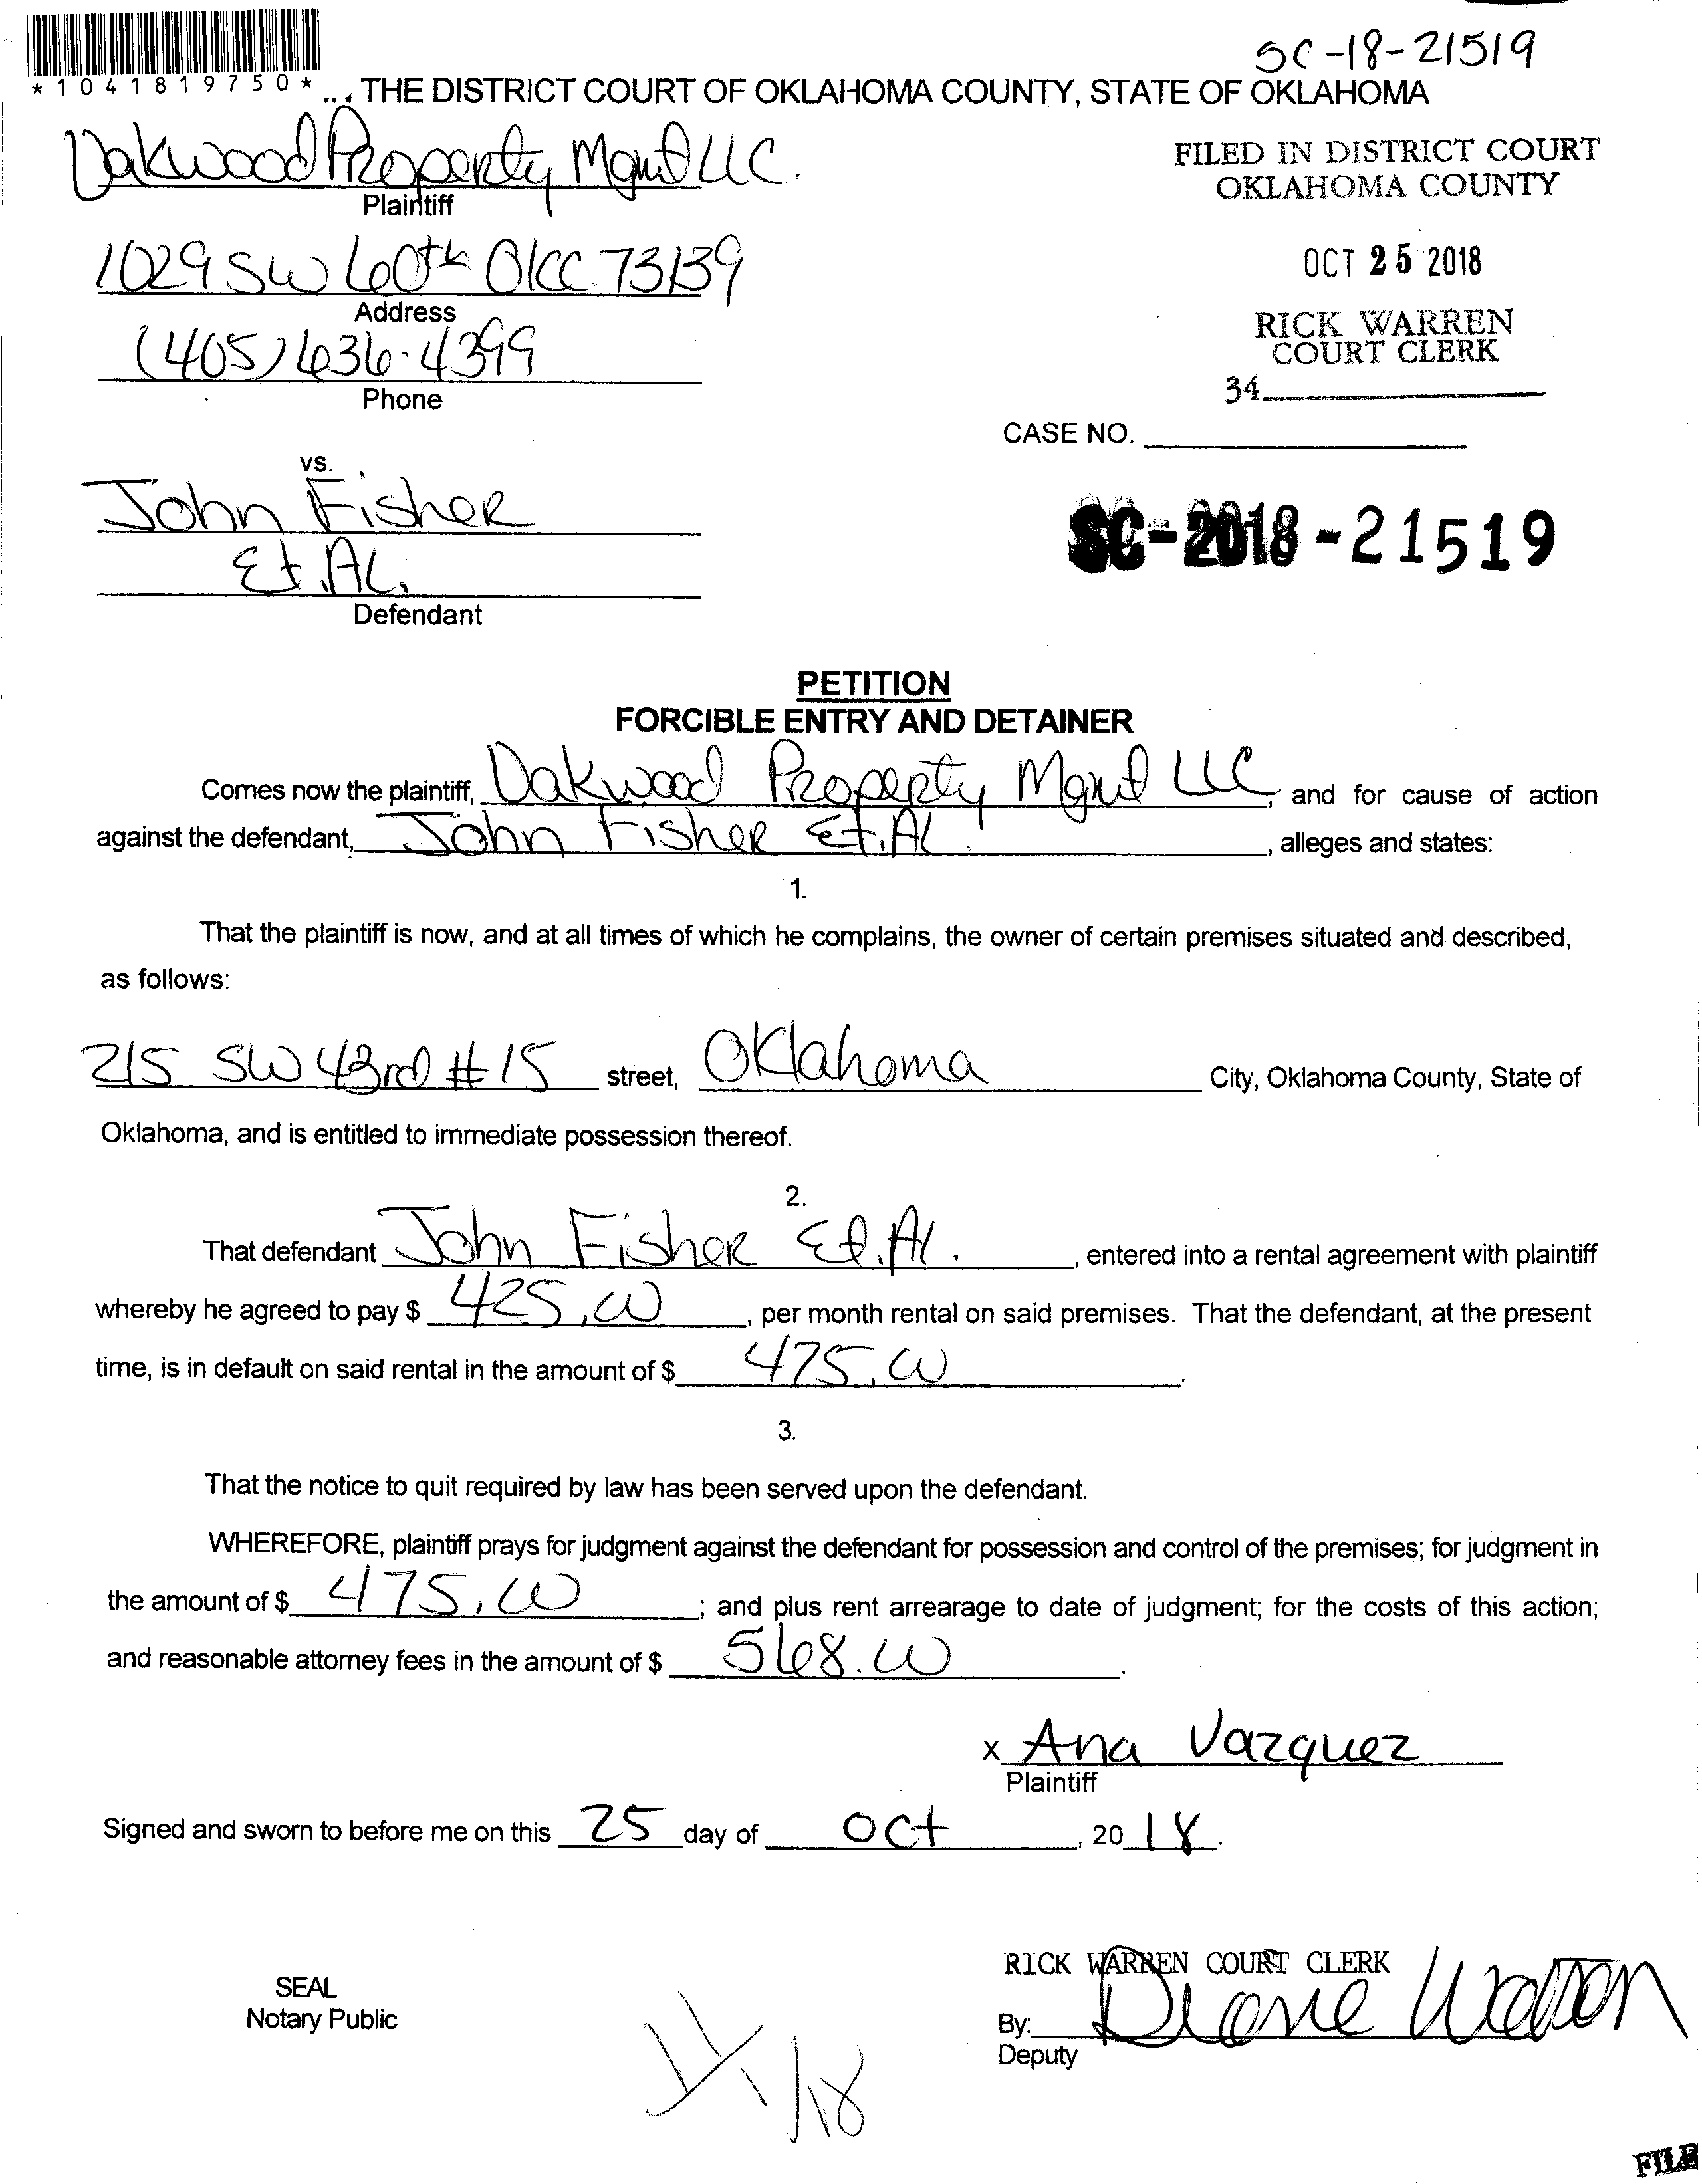 SC-18-21519
*1041819750*
THE DISTRICT COURT OF OKLAHOMA COUNTY, STATE OF OKLAHOMA
Oakwood Property Mgmt LLC.
Plaintiff
FILED IN DISTRICT COURT
OKLAHOMA COUNTY
1029 SW 60th OKC 73139
Address
OCT 25 2018
(405) 636-4399
Phone
RICK WARREN
COURT CLERK
34
CASE NO.
vs.
John Fisher
Et. Al.
Defendant
SC-2018-21519
PETITION
FORCIBLE ENTRY AND DETAINER
Comes now the plaintiff, Oakwood Property Mgmt LLC, and for cause of action
against the defendant, John Fisher Et. Al., alleges and states:
1.
That the plaintiff is now, and at all times of which he complains, the owner of certain premises situated and described,
as follows:
215 SW 43rd #15 street, Oklahoma City, Oklahoma County, State of
Oklahoma, and is entitled to immediate possession thereof.
2.
That defendant John Fisher Et. Al., entered into a rental agreement with plaintiff
whereby he agreed to pay $ 425.00, per month rental on said premises. That the defendant, at the present
time, is in default on said rental in the amount of $ 475.00.
3.
That the notice to quit required by law has been served upon the defendant.
WHEREFORE, plaintiff prays for judgment against the defendant for possession and control of the premises; for judgment in
the amount of $ 475.00; and plus rent arrearage to date of judgment; for the costs of this action;
and reasonable attorney fees in the amount of $ 568.00.
x Ana Vazquez
Plaintiff
Signed and sworn to before me on this 25 day of Oct, 2018.
RICK WARREN COURT CLERK
SEAL
Notary Public
By: Diane
Deputy
FILE